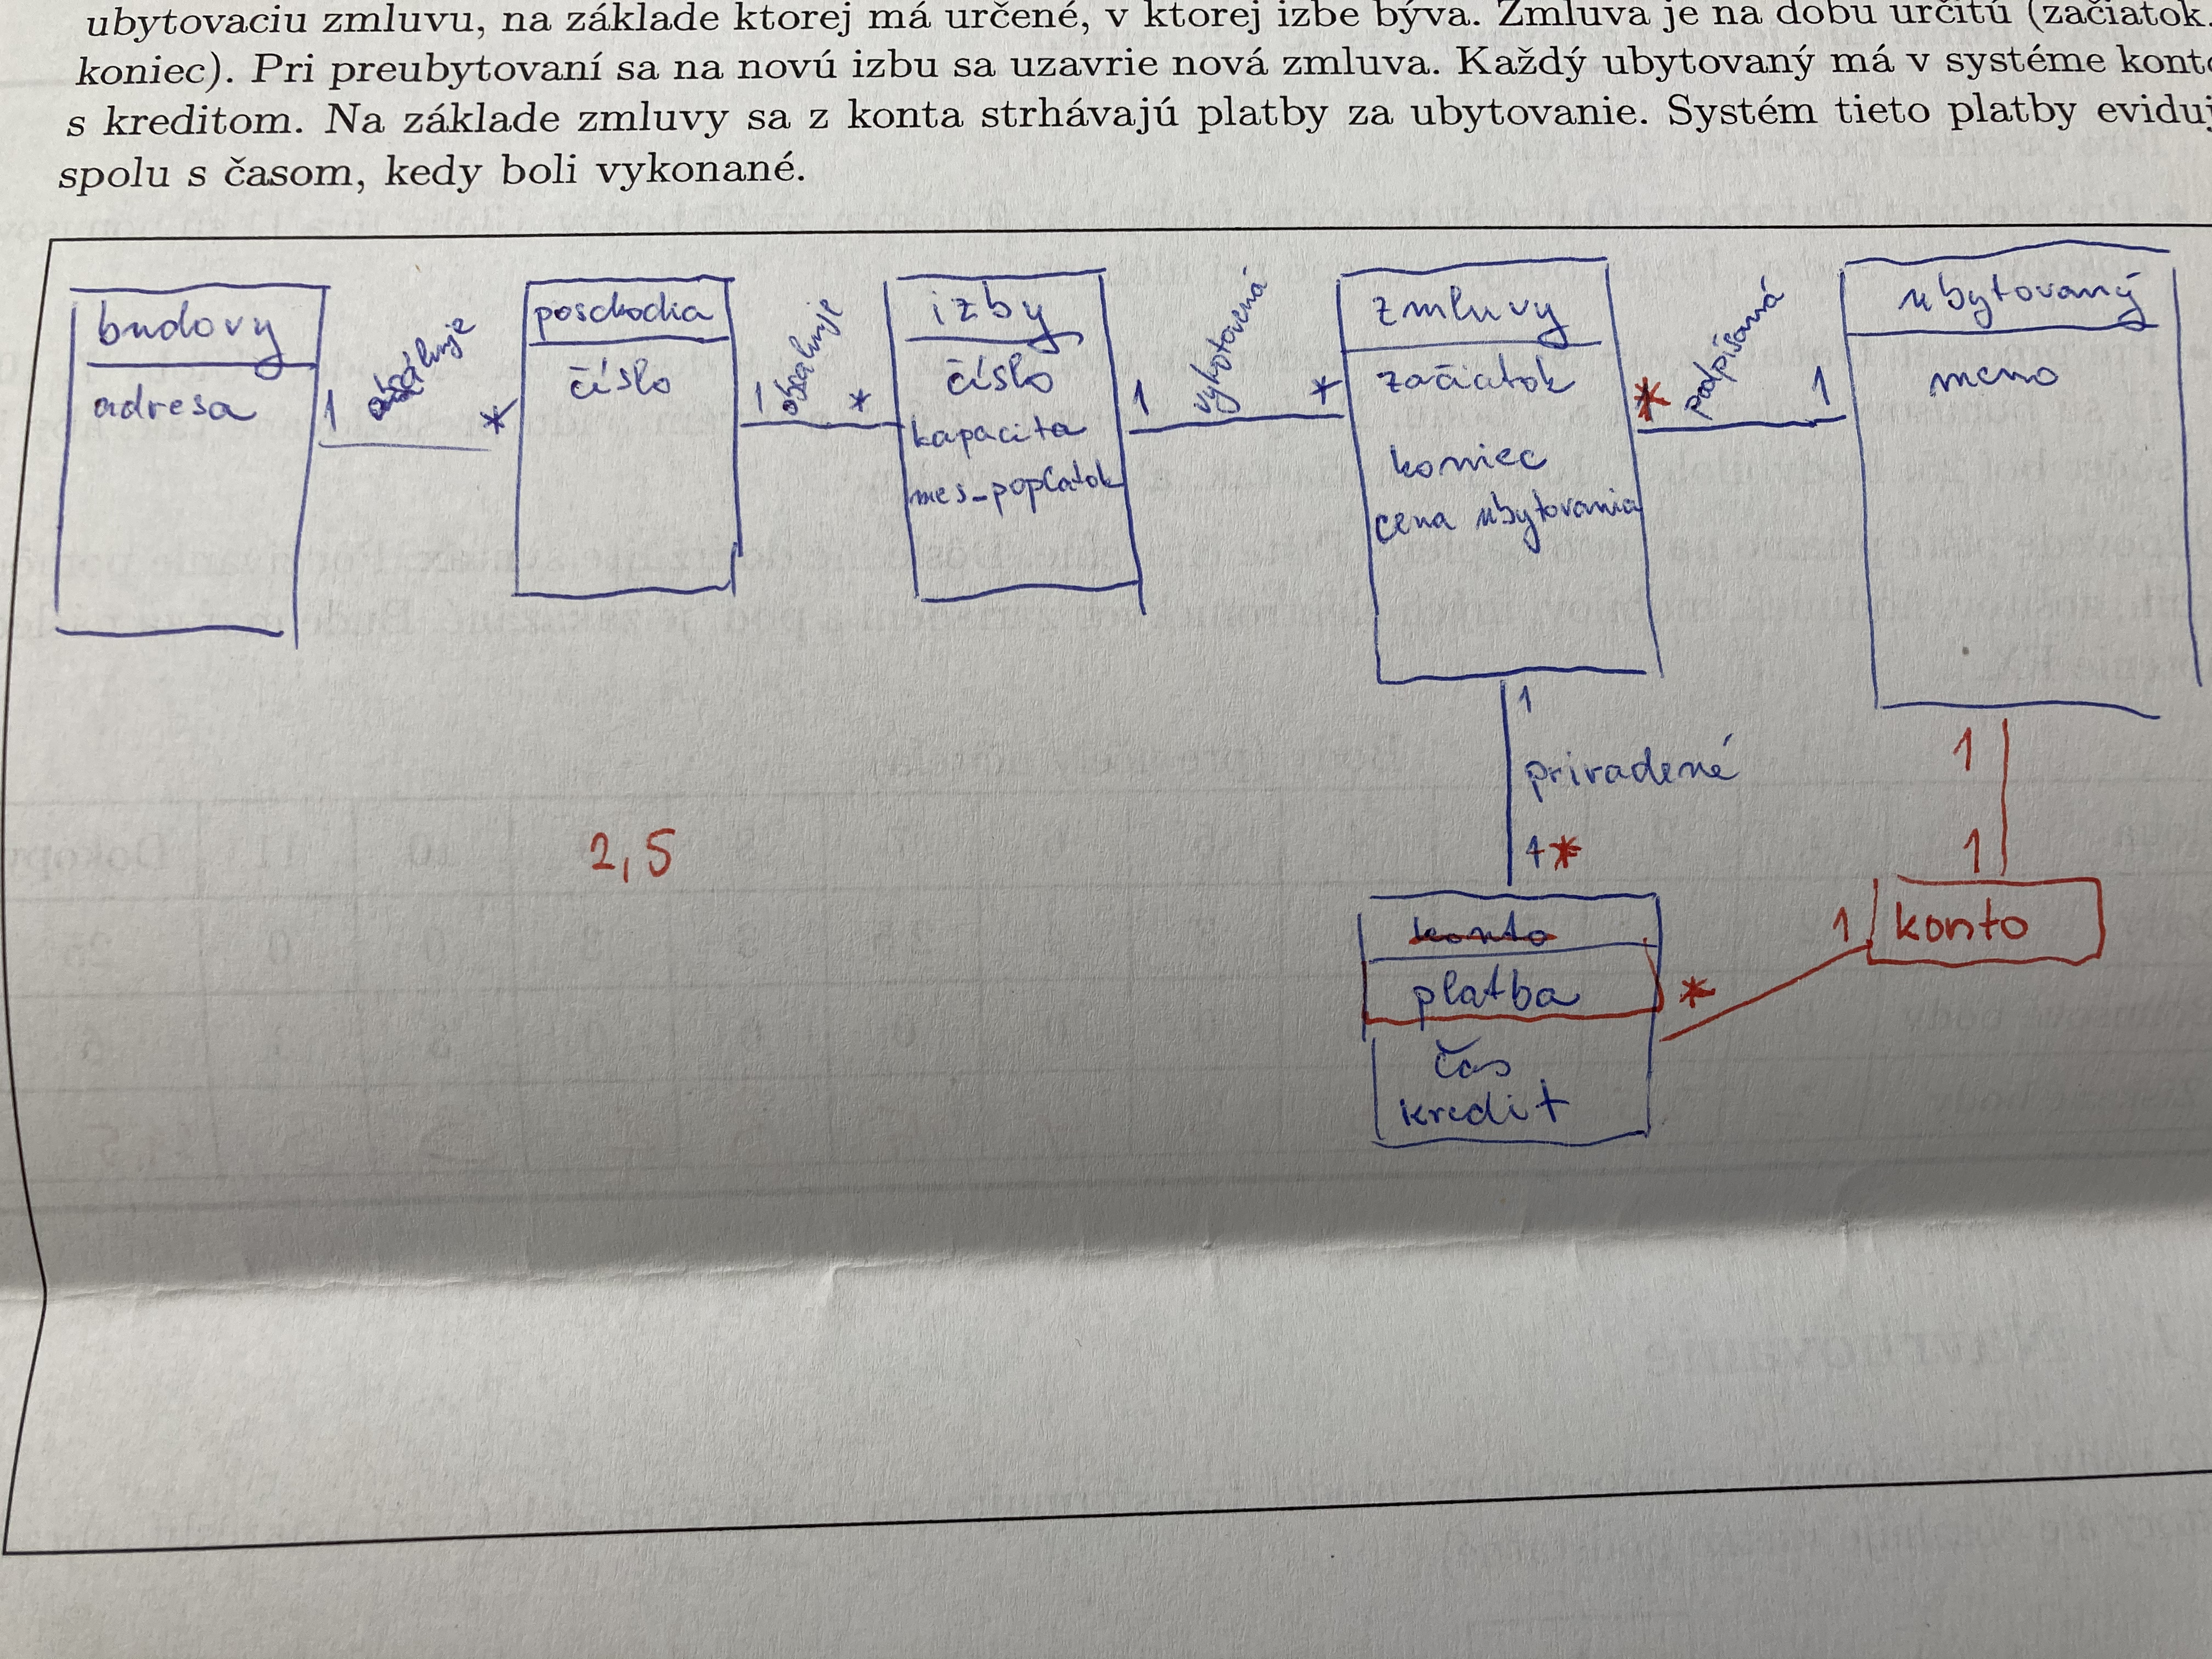 ubytovaciu zmluvu, na základe ktorej má určené, v ktorej izbe býva. Zmluva je na dobu určitú (začiatok,
koniec). Pri preubytovaní sa na novú izbu sa uzavrie nová zmluva. Každý ubytovaný má v systéme konto
s kreditom. Na základe zmluvy sa z konta strhávajú platby za ubytovanie. Systém tieto platby eviduj
spolu s časom, kedy boli vykonané.
budovy
adresa
1 obsahuje *
poschodia
číslo
1 obsahuje *
izby
číslo
kapacita
mes_poplatok
1 vyhotovená *
zmluvy
začiatok
koniec
cena ubytovania
* podpísaná 1
ubytovaný
meno
1
priradené
1 *
2,5
konto
platba
čas
kredit
1
1
1 konto
*